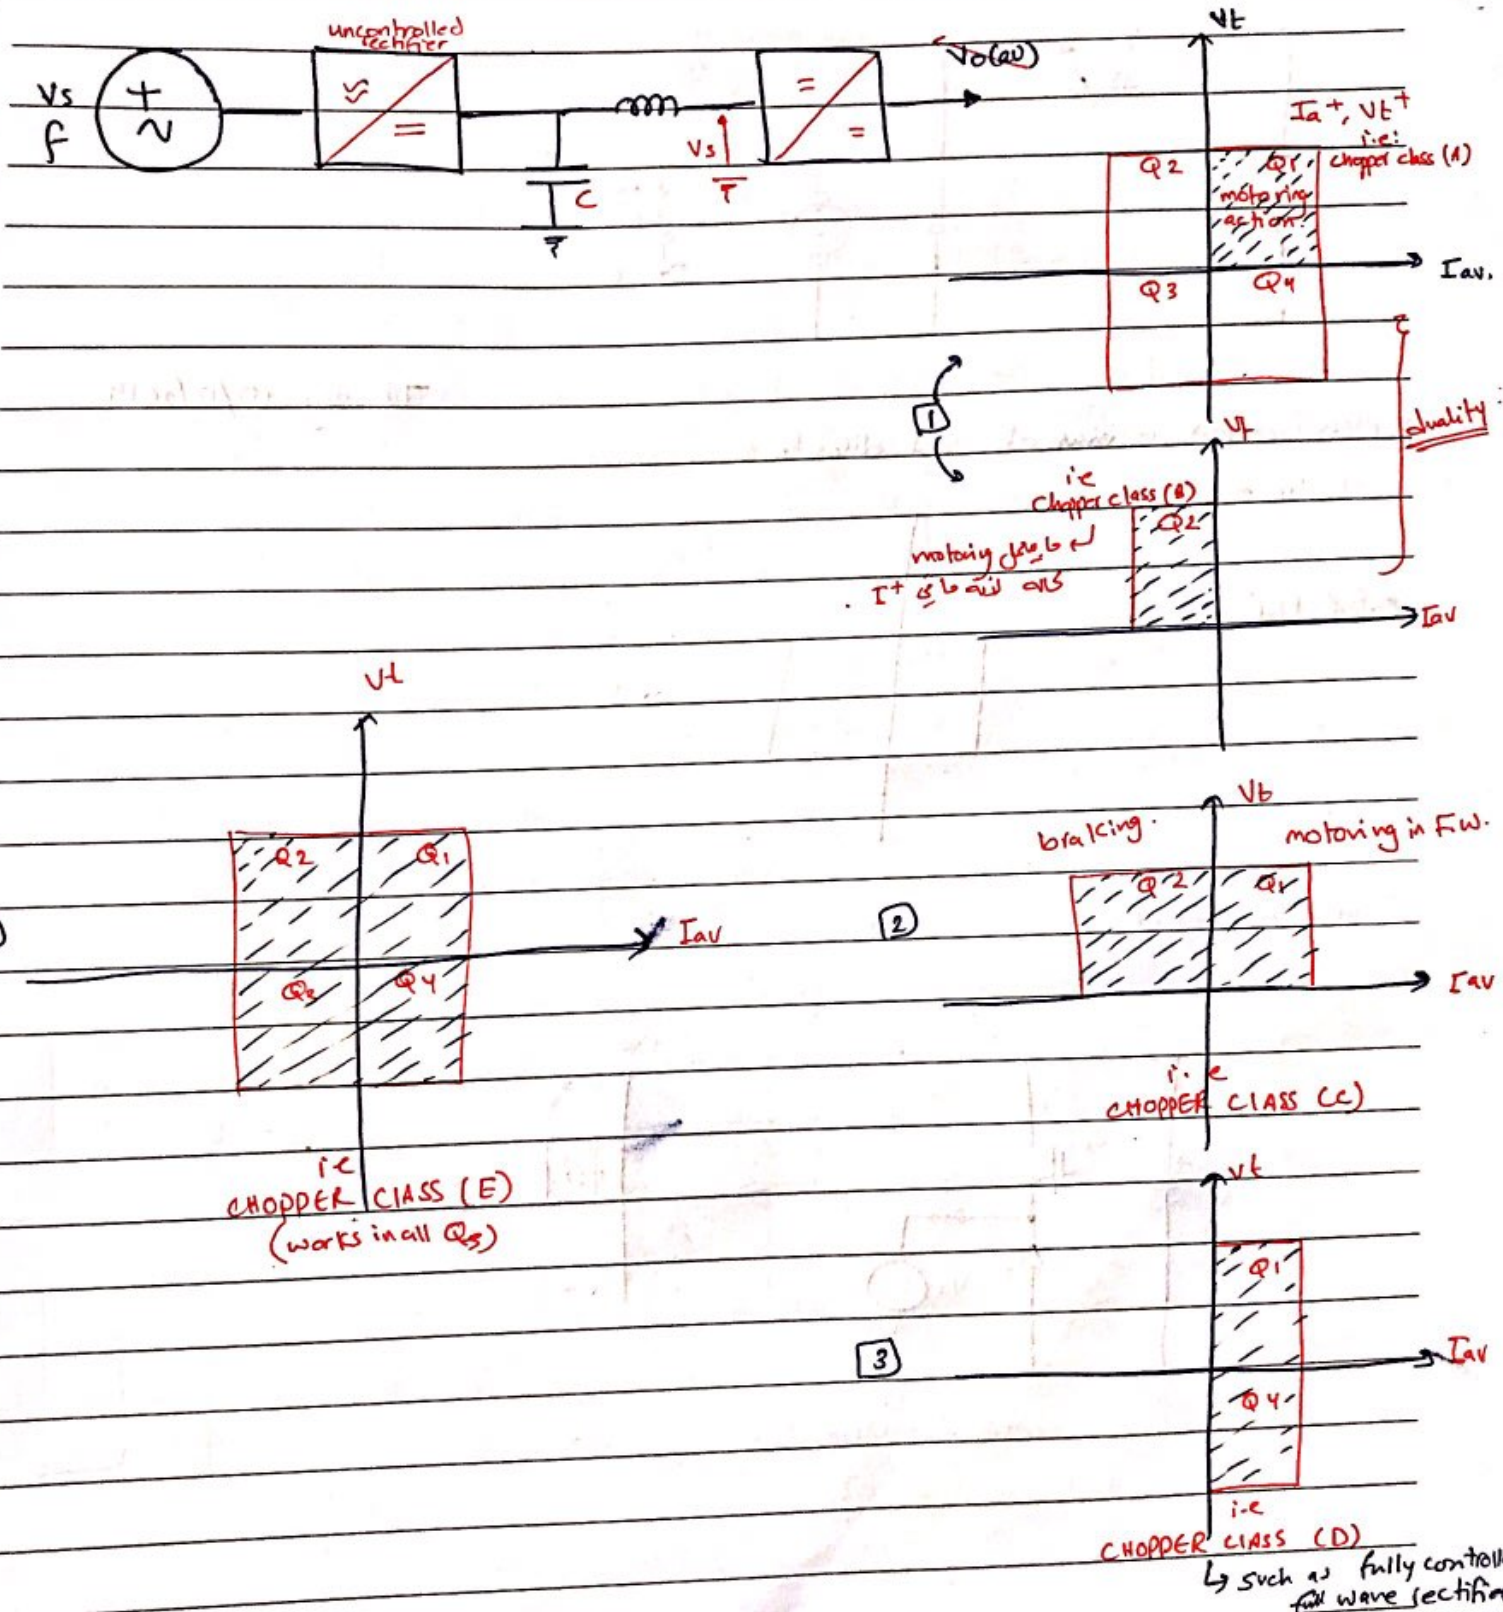 uncontrolled
rectifier
Vs
f
C
Vs
Vo(av)
Vt
Ia+, Vt+
i.e:
chopper class (A)
Q2
Q1
motoring
action
Iav.
Q3
Q4
1
duality
Vt
i.e
Chopper class (B)
Q2
motoring
I+
Iav
Vt
Q2
Q1
Iav
Q3
Q4
i.e
CHOPPER CLASS (E)
(works in all Qs)
Vt
braking.
motoring in F.W.
2
Q2
Q1
Iav
i.e
CHOPPER CLASS (C)
Vt
Q1
3
Iav
Q4
i-e
CHOPPER CLASS (D)
↳ such as fully controll
full wave rectifi